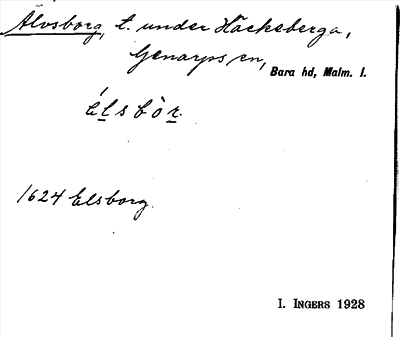 Älvsborg, t. under Häckeberga,
Genarps sn, Bara hd, Malm. l.
élsbòr.
1624 Elsborg.
I. INGERS 1928